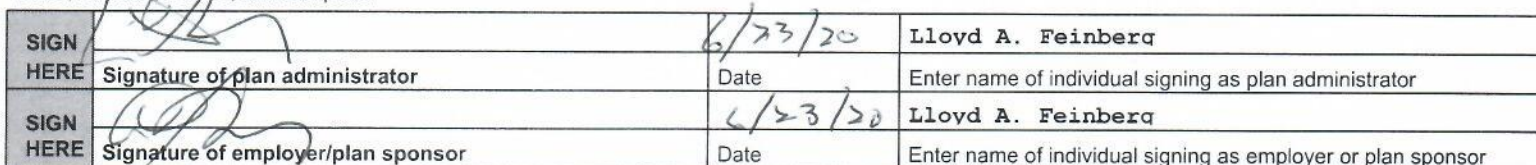 SIGN HERE 6/23/20 Lloyd A. Feinberg
Signature of plan administrator Date Enter name of individual signing as plan administrator
SIGN HERE 6/23/20 Lloyd A. Feinberg
Signature of employer/plan sponsor Date Enter name of individual signing as employer or plan sponsor